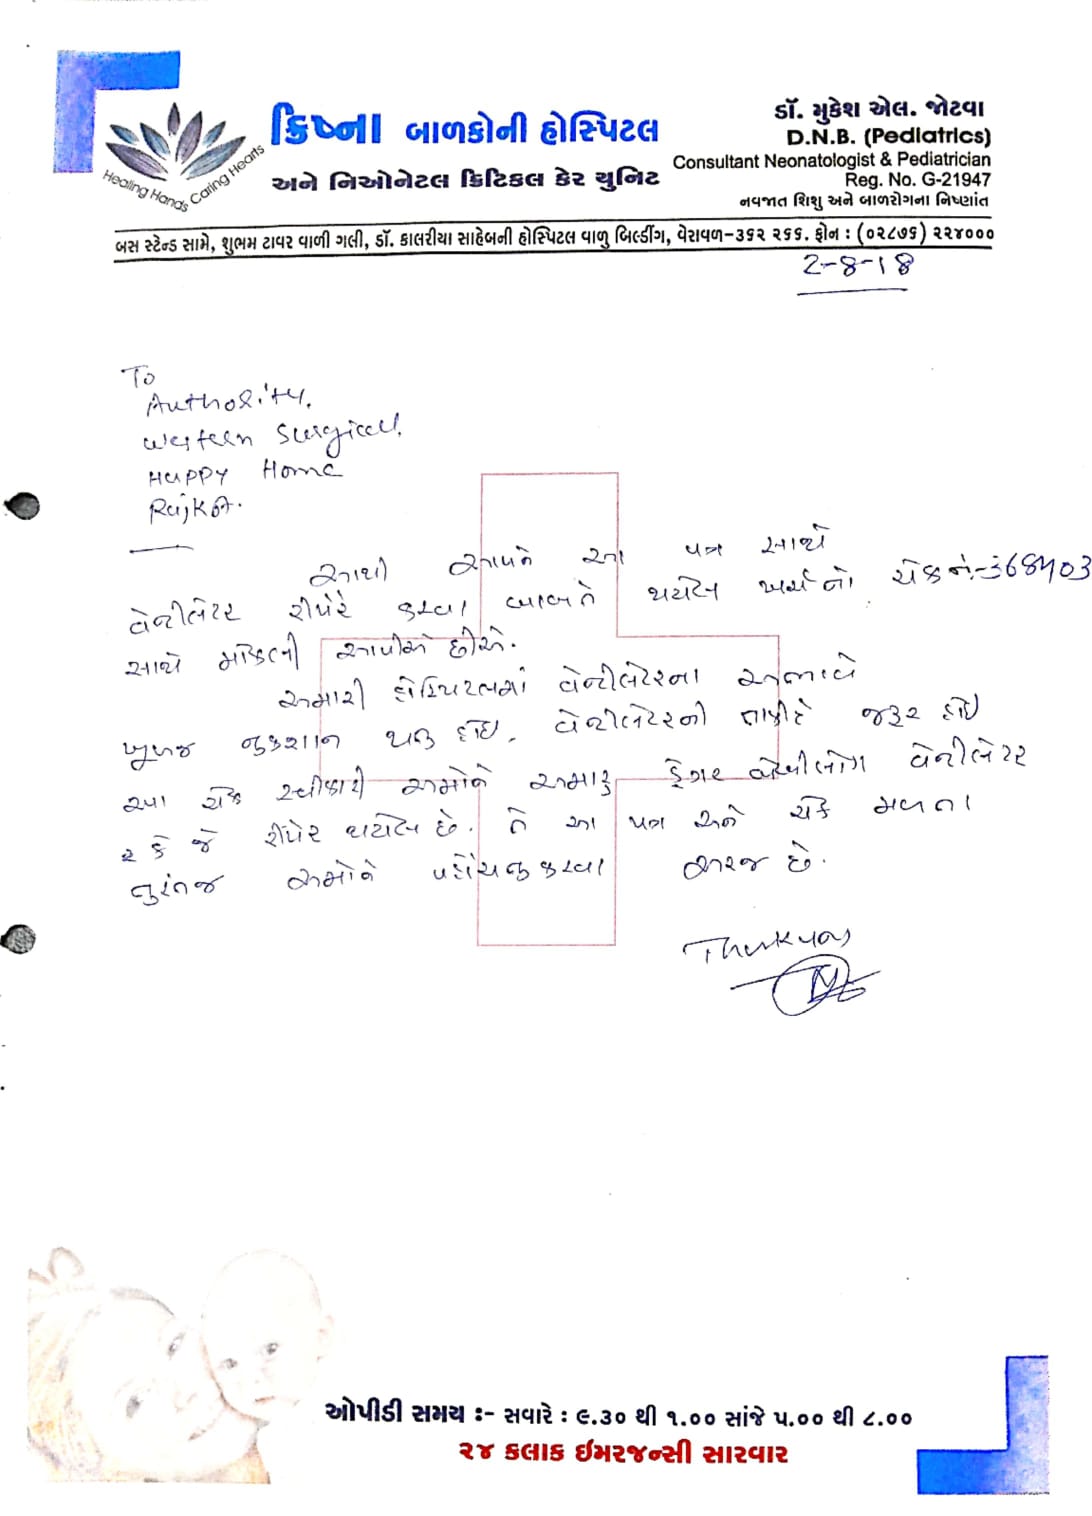 Healing Hands Caring Hearts
ક્રિષ્ના બાળકોની હોસ્પિટલ
અને નિઓનેટલ ક્રિટિકલ કેર યુનિટ
ડૉ. મુકેશ એલ. જોટવા
D.N.B. (Pediatrics)
Consultant Neonatologist & Pediatrician
Reg. No. G-21947
નવજાત શિશુ અને બાળરોગના નિષ્ણાંત
બસ સ્ટેન્ડ સામે, શુભમ ટાવર વાળી ગલી, ડૉ. કાલરીયા સાહેબની હોસ્પિટલ વાળુ બિલ્ડીંગ, વેરાવળ-૩૬૨ ૨૬૬. ફોન : (૦૨૮૭૬) ૨૨૪૦૦૦
2-8-18
To
Authority,
Western Surgical,
Happy Home
Rajkot.
આથી આપને આ પત્ર સાથે
વેન્ટીલેટર રીપેર કરવા બાબતે થયેલ ખર્ચનો ચેક નં-368403
સાથે મોકલી આપીએ છીએ.
અમારી હોસ્પિટલમાં વેન્ટીલેટરના અભાવે
ખૂબજ નુકશાન થતુ હોઇ, વેન્ટીલેટરની તાકીદે જરૂર હોઇ
આ ચેક સ્વીકારી અમોને અમારૂ વેન્ટીલેટર
કે જે રીપેર થયેલ છે. તે આ પત્ર અને ચેક મળતા
તુરંતજ અમોને પહોંચતુ કરવા અરજ છે.
Thank you
ઓપીડી સમય :- સવારે : ૯.૩૦ થી ૧.૦૦ સાંજે ૫.૦૦ થી ૮.૦૦
૨૪ કલાક ઈમરજન્સી સારવાર